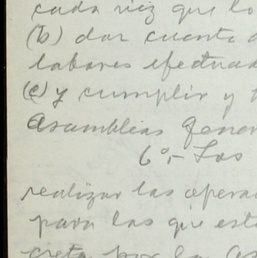 cada vez que lo
(b) dar cuenta d
labores efectuad
(c) y cumplir y
Asambleas Gener
6º.- Los
realizar las opera
para las que est
creta por la As